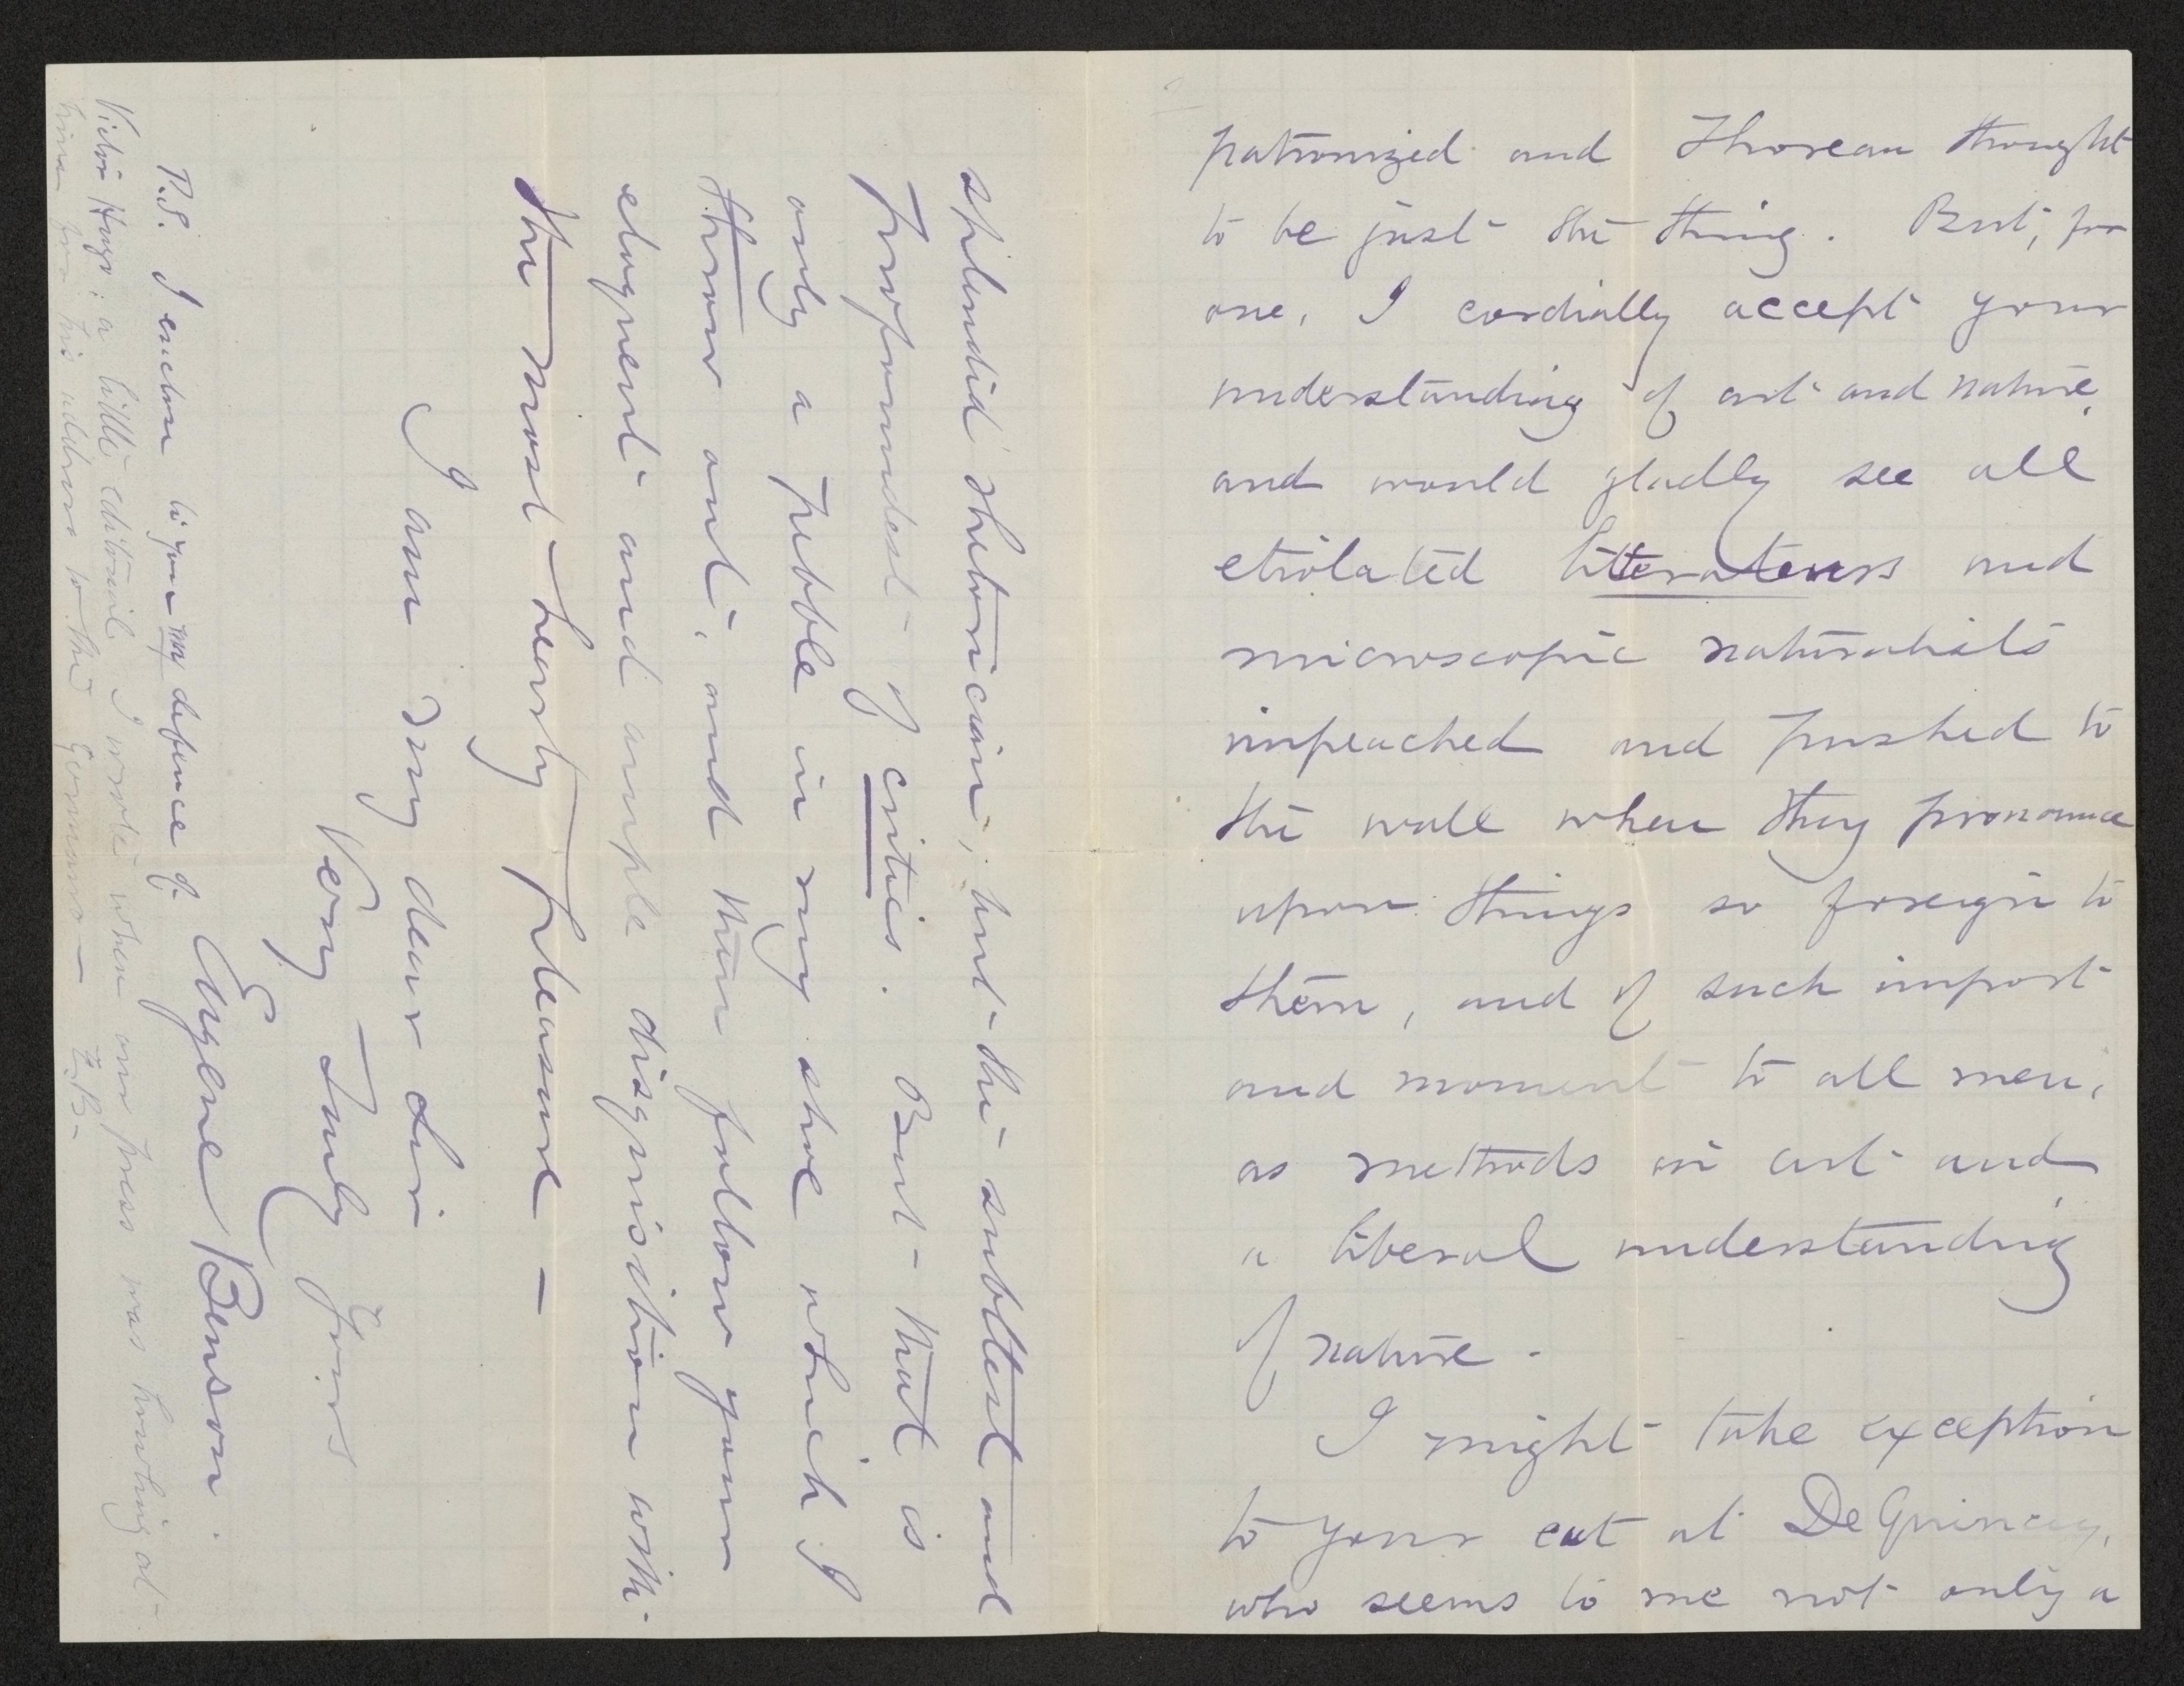 patronized and Thoreau thought
to be just the thing. But, for
one, I cordially accept your
understanding of art and nature,
and would gladly see all
etiolated litterateurs and
microscopic naturalists
impeached and pushed to
the wall when they pronounce
upon things so foreign to
them, and of such import
and moment to all men,
as methods in art and
a liberal understanding
of nature.
I might take exception
to your cut at DeQuincey,
who seems to me not only a
splendid rhetorician, but the subtlest and
profoundest of critics. But that is
only a pebble in my shoe which I
throw out, and then follow your
eloquent and ample disquisition with
the most hearty pleasure —
I am my dear Sir
Very Truly Yours
Eugene Benson.
P.S. I enclose to you my defence of
Victor Hugo: a little editorial I wrote when our press was howling at
him for his address to the Germans — E.B.